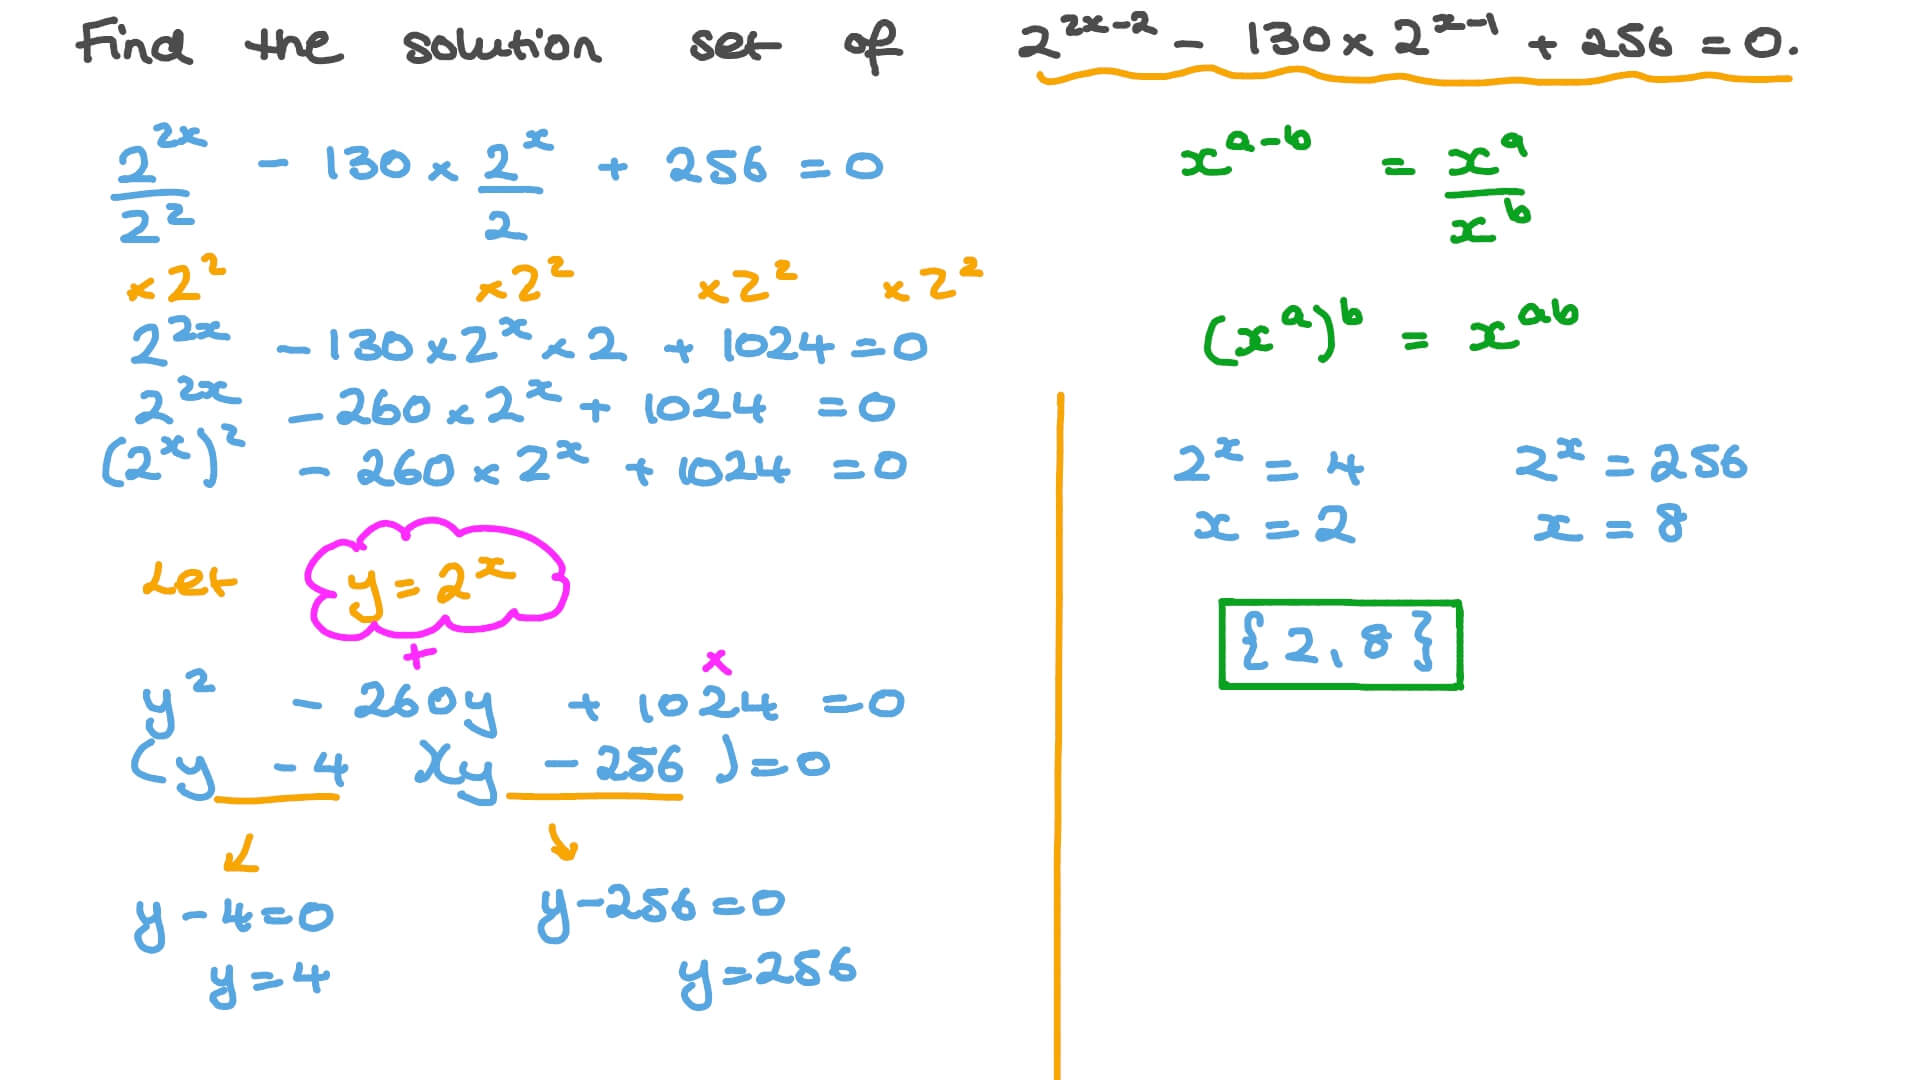 Find the solution set of 2^{2x-2} - 130 × 2^{x-1} + 256 = 0.
2^{2x}/2^2 - 130 × 2^x/2 + 256 = 0
×2^2 ×2^2 ×2^2 ×2^2
2^{2x} - 130 × 2^x × 2 + 1024 = 0
2^{2x} - 260 × 2^x + 1024 = 0
(2^x)^2 - 260 × 2^x + 1024 = 0
Let y = 2^x
+ ×
y^2 - 260y + 1024 = 0
(y - 4)(y - 256) = 0
y - 4 = 0 y - 256 = 0
y = 4 y = 256
x^{a-b} = x^a/x^b
(x^a)^b = x^{ab}
2^x = 4 2^x = 256
x = 2 x = 8
{2, 8}